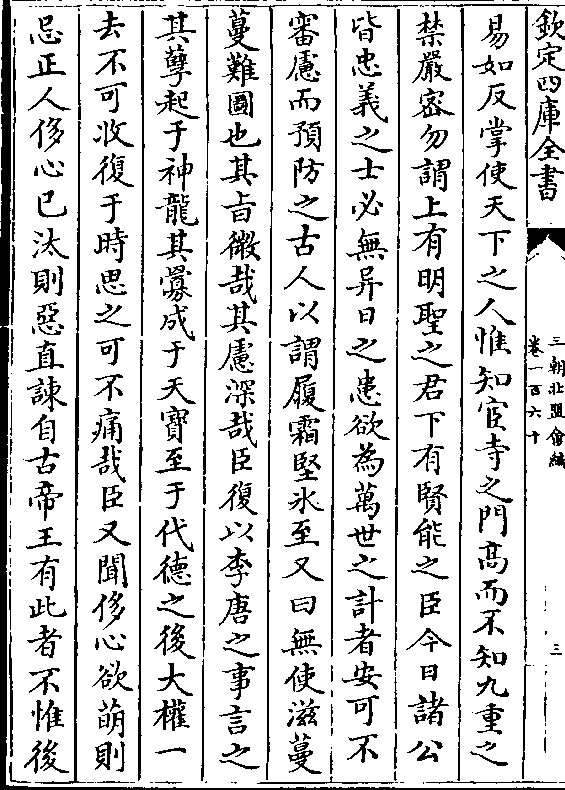 欽定四庫全書
三朝北盟會編
卷一百六十
三
易如反掌使天下之人惟知宦寺之門髙而不知九重之
禁嚴宻勿謂上有明聖之君下有賢能之臣今日諸公
皆忠義之士必無异日之患欲為萬世之計者安可不
審慮而預防之古人以謂履霜堅氷至又曰無使滋蔓
蔓難圖也其㫖微哉其慮深哉臣復以李唐之事言之
其孽起于神龍其釁成于天寳至于代德之後大權一
去不可收復于時思之可不痛哉臣又聞侈心欲萌則
忌正人侈心已汰則惡直諫自古帝王有此者不惟後